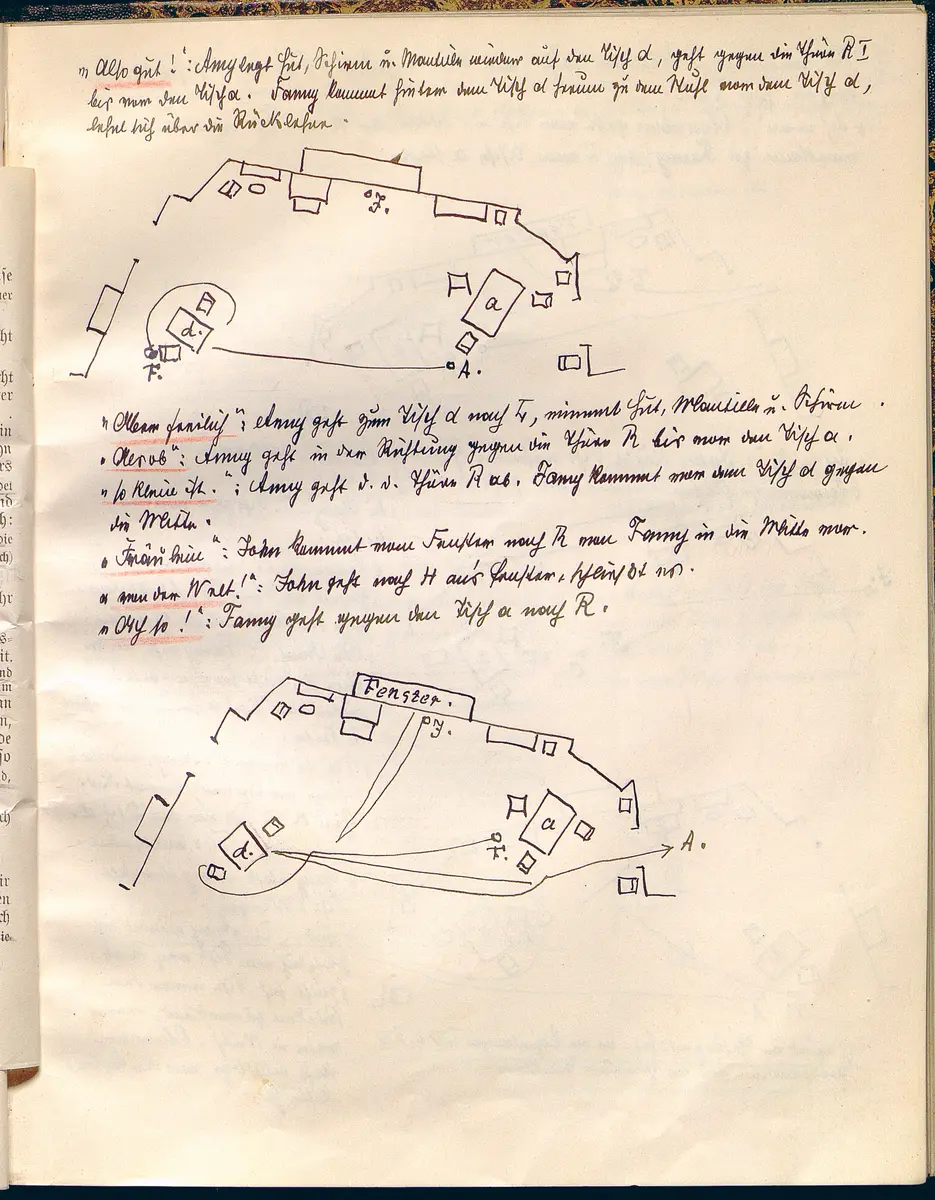 „Also gut!“: Anny legt Hut, Schirm u. Mantille wieder auf den Tisch d, geht gegen die Thüre R I
bis vor den Tisch a. Fanny kommt hinter dem Tisch d herum zu dem Stuhl vor dem Tisch d,
lehnt sich über die Rücklehne.
J.
a
d.
F.
A.
„Aber freilich“: Anny geht zum Tisch d nach L, nimmt Hut, Mantille u. Schirm.
„Als ob“: Anny geht in der Richtung gegen die Thüre R bis vor den Tisch a.
„so kleine ist.“: Anny geht d. d. Thüre R ab. Fanny kommt vor dem Tisch d gegen
die Mitte.
„Fräulein“: John kommt vom Fenster nach R von Fanny in die Mitte vor.
„von der Welt!“: John geht nach H an's Fenster, schließt es.
„Ach so!“: Fanny geht gegen den Tisch a nach R.
Fenster.
J.
a
F.
d.
A.
se
er
ht
ht
er
in
n
rs
bei
nd
h:
die
ch)
hr
s=
it.
nd
m
an
n,
de
so
d,
ch
ir
en
ch
ie.